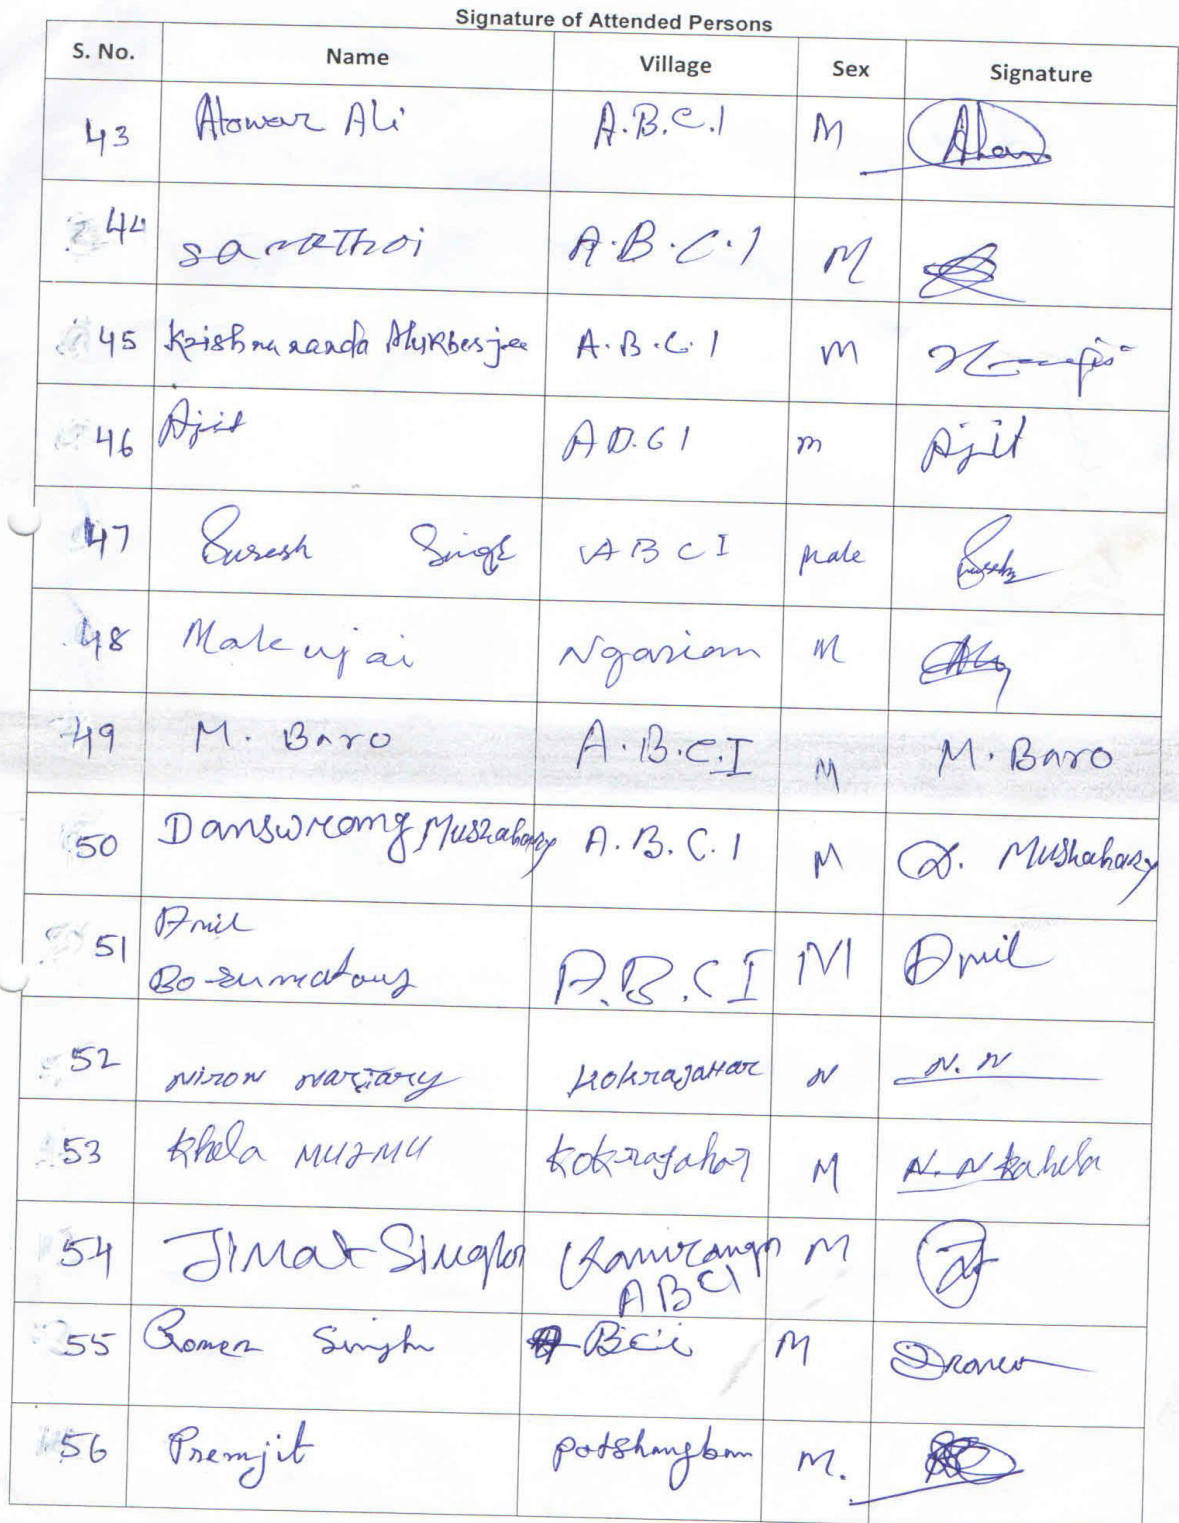 Signature of Attended Persons
S. No. Name Village Sex Signature
43 Atowar Ali A.B.C.I M
44 sarathoi A.B.C.I M
45 Krishnananda Mukherjee A.B.C.I M
46 Ajit A.B.C.I m Ajit
47 Suresh Singh ABCI Male
48 Makujai Ngariam M
49 M. Baro A.B.C.I M M. Baro
50 Danswrang Mushahary A.B.C.I M D. Mushahary
51 Anil A.B.CI M Anil
52 Niron Narjary Kokrajahar N.N
53 Khela MURMU Kokrajahar M N.N
54 Singh M
ABCI
55 Romen Singh BCI M
56 Premjit Potshangbam M.